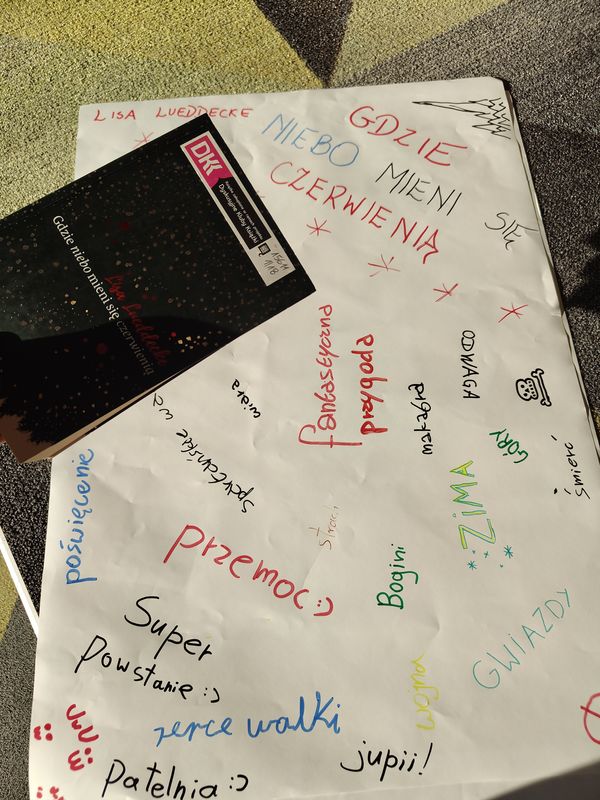 LISA LUEDDECKE
GDZIE
NIEBO MIENI SIĘ
CZERWIENIĄ
DKK
Dyskusyjne Kluby Książki
15611
11/18
Gdzie niebo mieni się czerwienią
Lisa Lueddecke
fantastyczna
przygoda
ODWAGA
wiara
GÓRY
śmierć
poświęcenie
ZIMA
przemoc :)
Bogini
GWIAZDY
Super
Powstanie :)
wojna
serce walki
jupii!
UwU
Patelnia :)